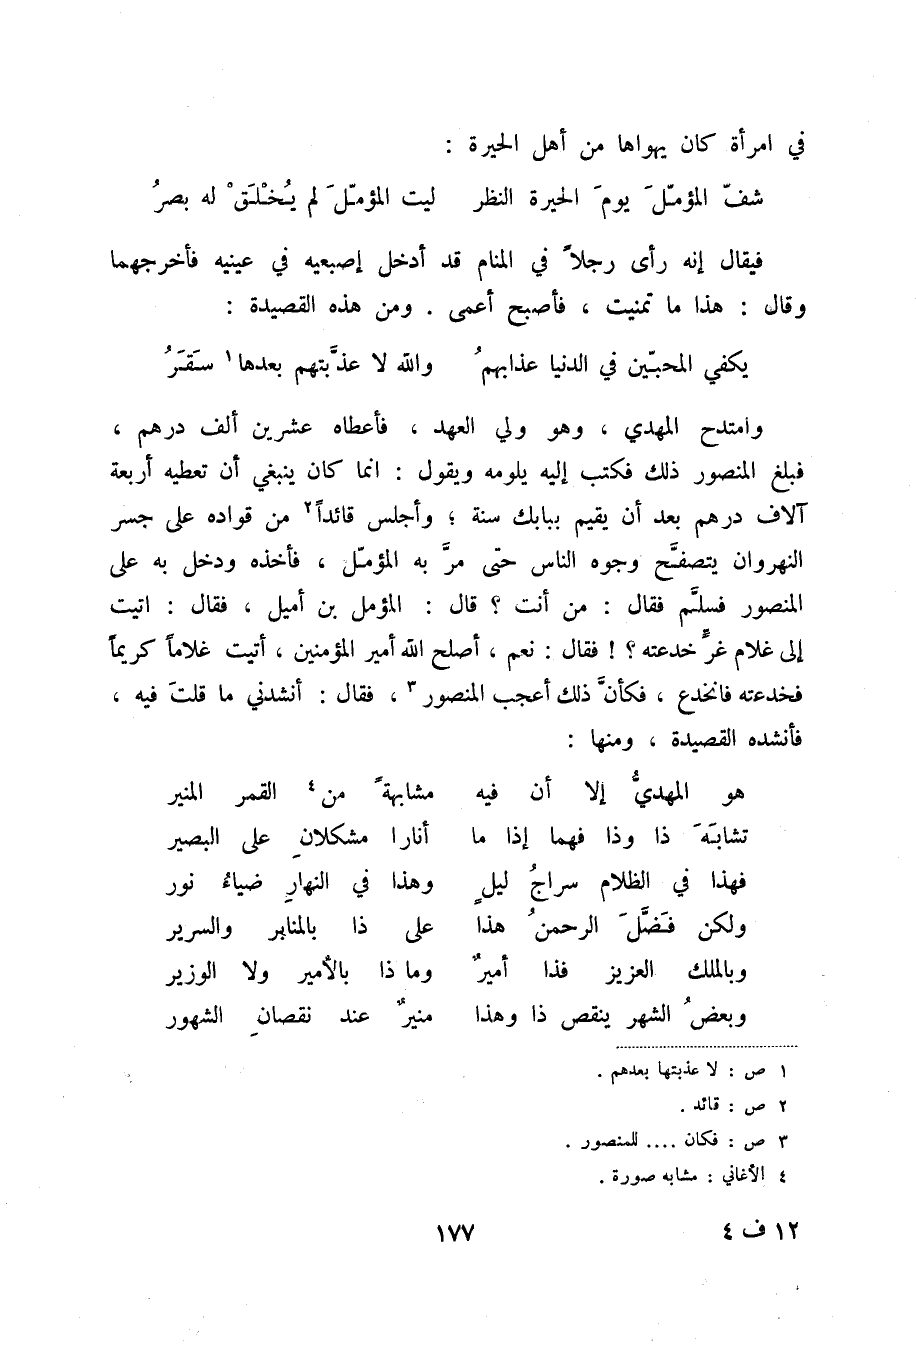 في امرأة كان يهواها من أهل الحيرة :
شفّ المؤمّلَ يومَ الحيرة النظر ليت المؤمّلَ لم يُخْلَقْ له بصرُ
فيقال إنه رأى رجلاً في المنام قد أدخل إصبعيه في عينيه فأخرجهما
وقال : هذا ما تمنيت ، فأصبح أعمى . ومن هذه القصيدة :
يكفي المحبّين في الدنيا عذابهمُ والله لا عذّبتهم بعدها١ سَقَرَُ
وامتدح المهدي ، وهو ولي العهد ، فأعطاه عشرين ألف درهم ،
فبلغ المنصور ذلك فكتب إليه يلومه ويقول : انما كان ينبغي أن تعطيه أربعة
آلاف درهم بعد أن يقيم ببابك سنة ؛ وأجلس قائداً٢ من قواده على جسر
النهروان يتصفّح وجوه الناس حتّى مرَّ به المؤمّل ، فأخذه ودخل به على
المنصور فسلّم فقال : من أنت ؟ قال : المؤمل بن أميل ، فقال : اتيت
إلى غلام غرٍّ خدعته ؟ ! فقال : نعم ، أصلح الله أمير المؤمنين ، أتيت غلاماً كريماً
فخدعته فانخدع ، فكأنَّ ذلك أعجب المنصور٣ ، فقال : أنشدني ما قلتَ فيه ،
فأنشده القصيدة ، ومنها :
هو المهديُّ إلا أن فيه مشابهةً من٤ القمر المنير
تشابَهَ ذا وذا فهما إذا ما أنارا مشكلانِ على البصير
فهذا في الظلام سراجُ ليلٍ وهذا في النهارِ ضياءُ نور
ولكن فَضَّلَ الرحمنُ هذا على ذا بالمنابر والسرير
وبالملك العزيز فذا أميرٌ وما ذا بالأمير ولا الوزير
وبعضُ الشهر ينقص ذا وهذا منيرٌ عند نقصانِ الشهور
١ ص : لا عذبتها بعدهم .
٢ ص : قائد .
٣ ص : فكان .... للمنصور .
٤ الأغاني : مشابه صورة .
١٢ ف ٤ ١٧٧